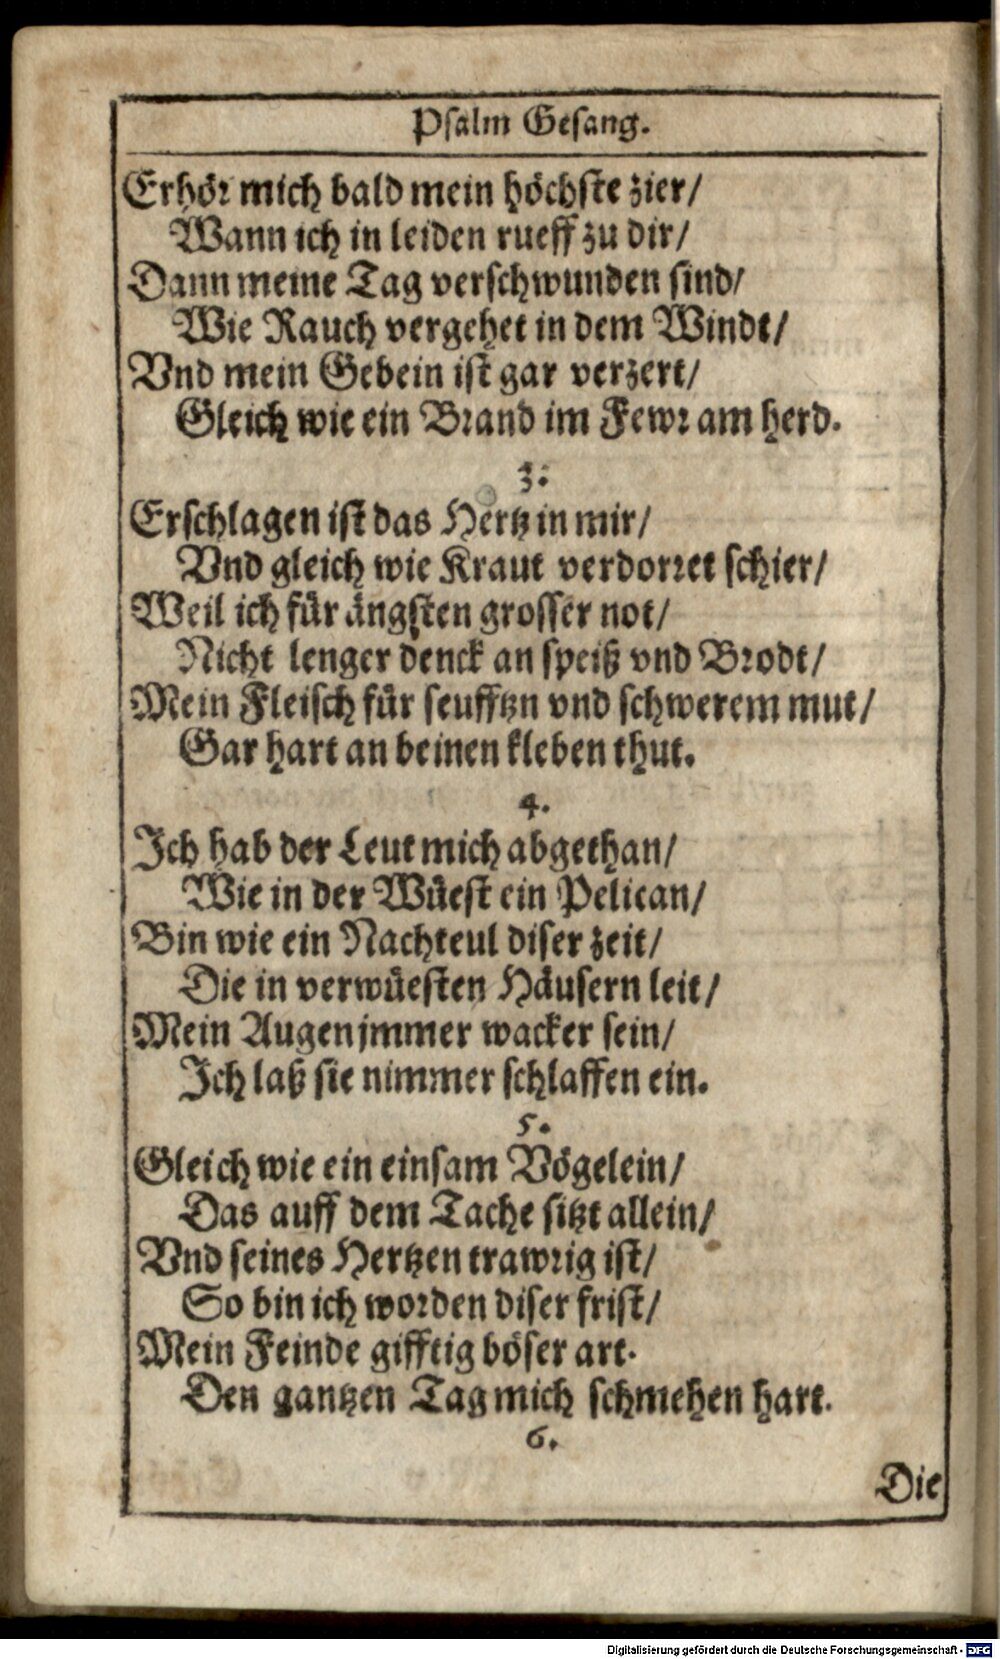 Psalm Gesang.
Erhör mich bald mein höchste zier/
Wann ich in leiden rueff zu dir/
Dann meine Tag verschwunden sind/
Wie Rauch vergehet in dem Windt/
Vnd mein Gebein ist gar verzert/
Gleich wie ein Brand im Fewr am herd.
3.
Erschlagen ist das Hertz in mir/
Vnd gleich wie Kraut verdorret schier/
Weil ich für ängsten grosser not/
Nicht lenger denck an speiß vnd Brodt/
Mein Fleisch für seufftzn vnd schwerem mut/
Gar hart an beinen kleben thut.
4.
Ich hab der Leut mich abgethan/
Wie in der Wüest ein Pelican/
Bin wie ein Nachteul diser zeit/
Die in verwüesten Häusern leit/
Mein Augen jmmer wacker sein/
Ich laß sie nimmer schlaffen ein.
5.
Gleich wie ein einsam Vögelein/
Das auff dem Tache sitzt allein/
Vnd seines Hertzen trawrig ist/
So bin ich worden diser frist/
Mein Feinde gifftig böser art.
Den gantzen Tag mich schmehen hart.
6.
Die
Digitalisierung gefördert durch die Deutsche Forschungsgemeinschaft - DFG